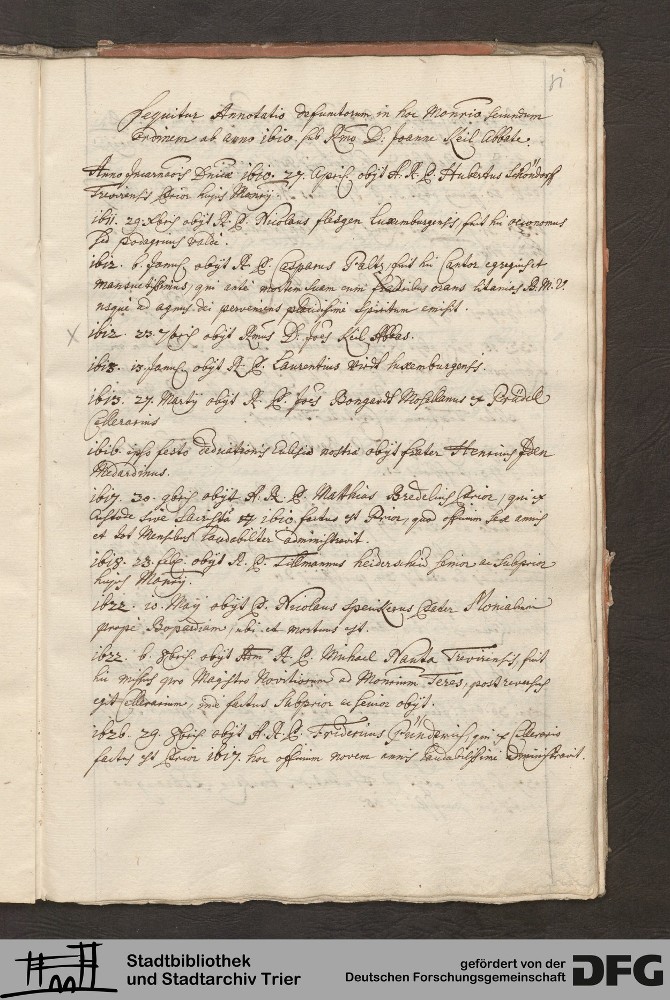 Sequitur Annotatio defunctorum in hoc Monrio secundum
ordinem ab anno 1610. sub Rmo D: Joanne Keil Abbate.
Anno Incarnaōis Dnicæ 1610. 27. April. obijt A. R. P. Hubertus Schöndorff
Trevirensis Prior hujus Monrij.
1611. 29. Xbris obijt R. P. Nicolaus flesgen Luxemburgensis, fuit hic oeconomus
sed podagricus valde.
1612. 6. Januar. obijt R. P. Casparus Paltz, fuit hic Cantor egregius et
mansuetissimus, qui ante mortem suam cum fratribus orans litanias B. M. V.
usque ad agnus dei perveniens placidissime spiritum emisit.
X 1612. 23. 7bris obijt Rmus D. Joēs Keil Abbas.
1613. 13. Januar. obijt R. P. Laurentius luxemburgensis.
1613. 27. Martij obijt R. P. Joēs Bongardt Mosellanus ex Prüdell
Cellerarius
1616. ipso festo dedicationis Ecclesiæ nostræ obijt frater Henricus
Medardinus.
1617. 30. 9bris obijt A. R. P. Matthias Bredelius Prior, qui ex
Custode sive Sacrista 1610 factus est Prior, quod officium sex annis
et tot Mensibus laudabiliter administravit.
1618. 23. obijt R. P. Tillmannus heiderscheid senior ac Subprior
hujus Monrij.
1622. 10. Maij obijt P. Nicolaus Speuserus Pater Monialium
prope Bopardiam, ubi et mortuus est.
1622. 6. 8bris. obijt R. P. Michael Nauta Trevirensis, fuit
hic missus pro Magistro Novitiorum ad Monrium Teres, post reversus
egit Cellerarium, inde factus Subprior ac senior obijt.
1626. 29. 8bris obijt A. R. P. Fridericus Pünderich, qui ex Cellerario
factus est Prior 1617. hoc officium novem annis laudabilissime administravit.
Stadtbibliothek
und Stadtarchiv Trier
gefördert von der
Deutschen Forschungsgemeinschaft
DFG